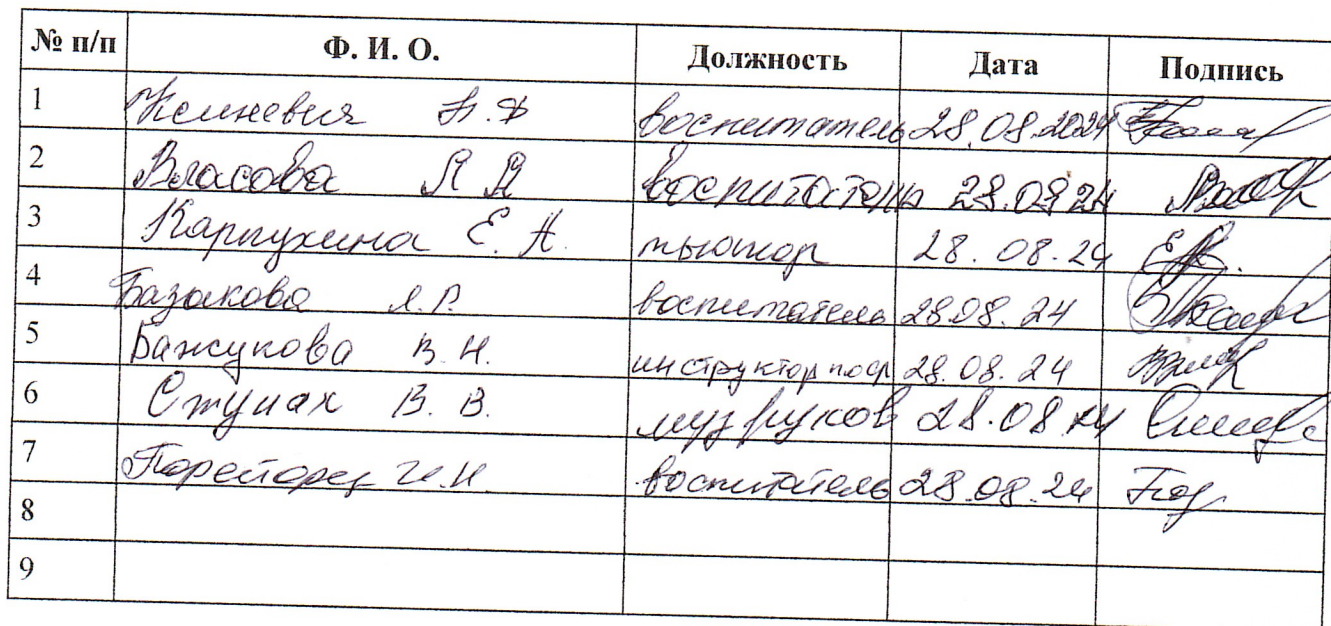 № п/п Ф. И. О. Должность Дата Подпись
1 Н.Ф воспитатель 28.08.2024
2 Власова Я Я воспитатель 28.08 24
3 Карпухина Е. А. тьютор 28. 08. 24
4 Базакова воспитатель 28.08. 24
5 Бажукова В. Н. инструктор 28. 08. 24
6 Ступак В. В. муз руков 28.08
7 И.Н. воспитатель 28.08.24
8
9